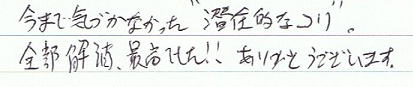 今まで気づかなかった"潜在的なコリ"。
全部解消、最高でした!! ありがとうございます。